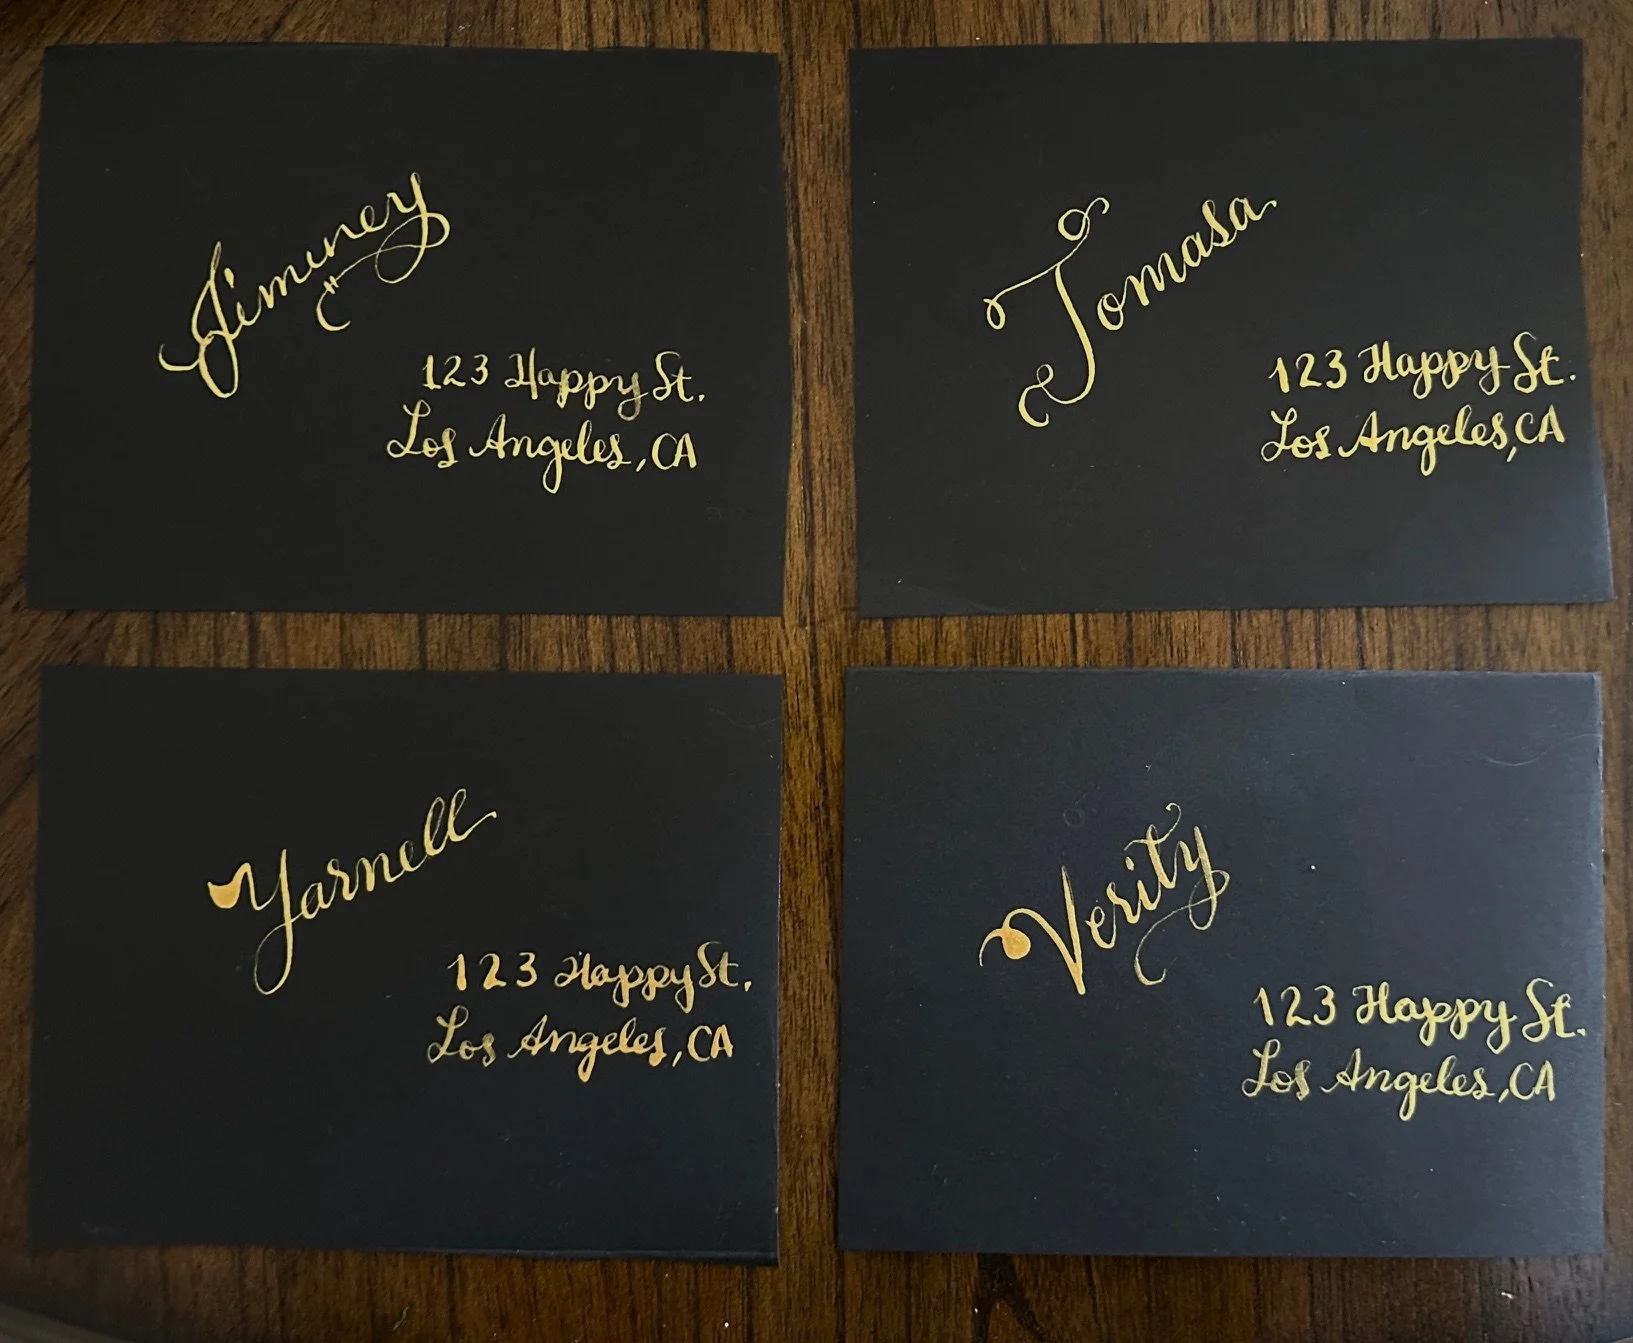 Jiminey
123 Happy St.
Los Angeles, CA
Tomasa
123 Happy St.
Los Angeles, CA
Yarnell
123 Happy St.
Los Angeles, CA
Verity
123 Happy St.
Los Angeles, CA